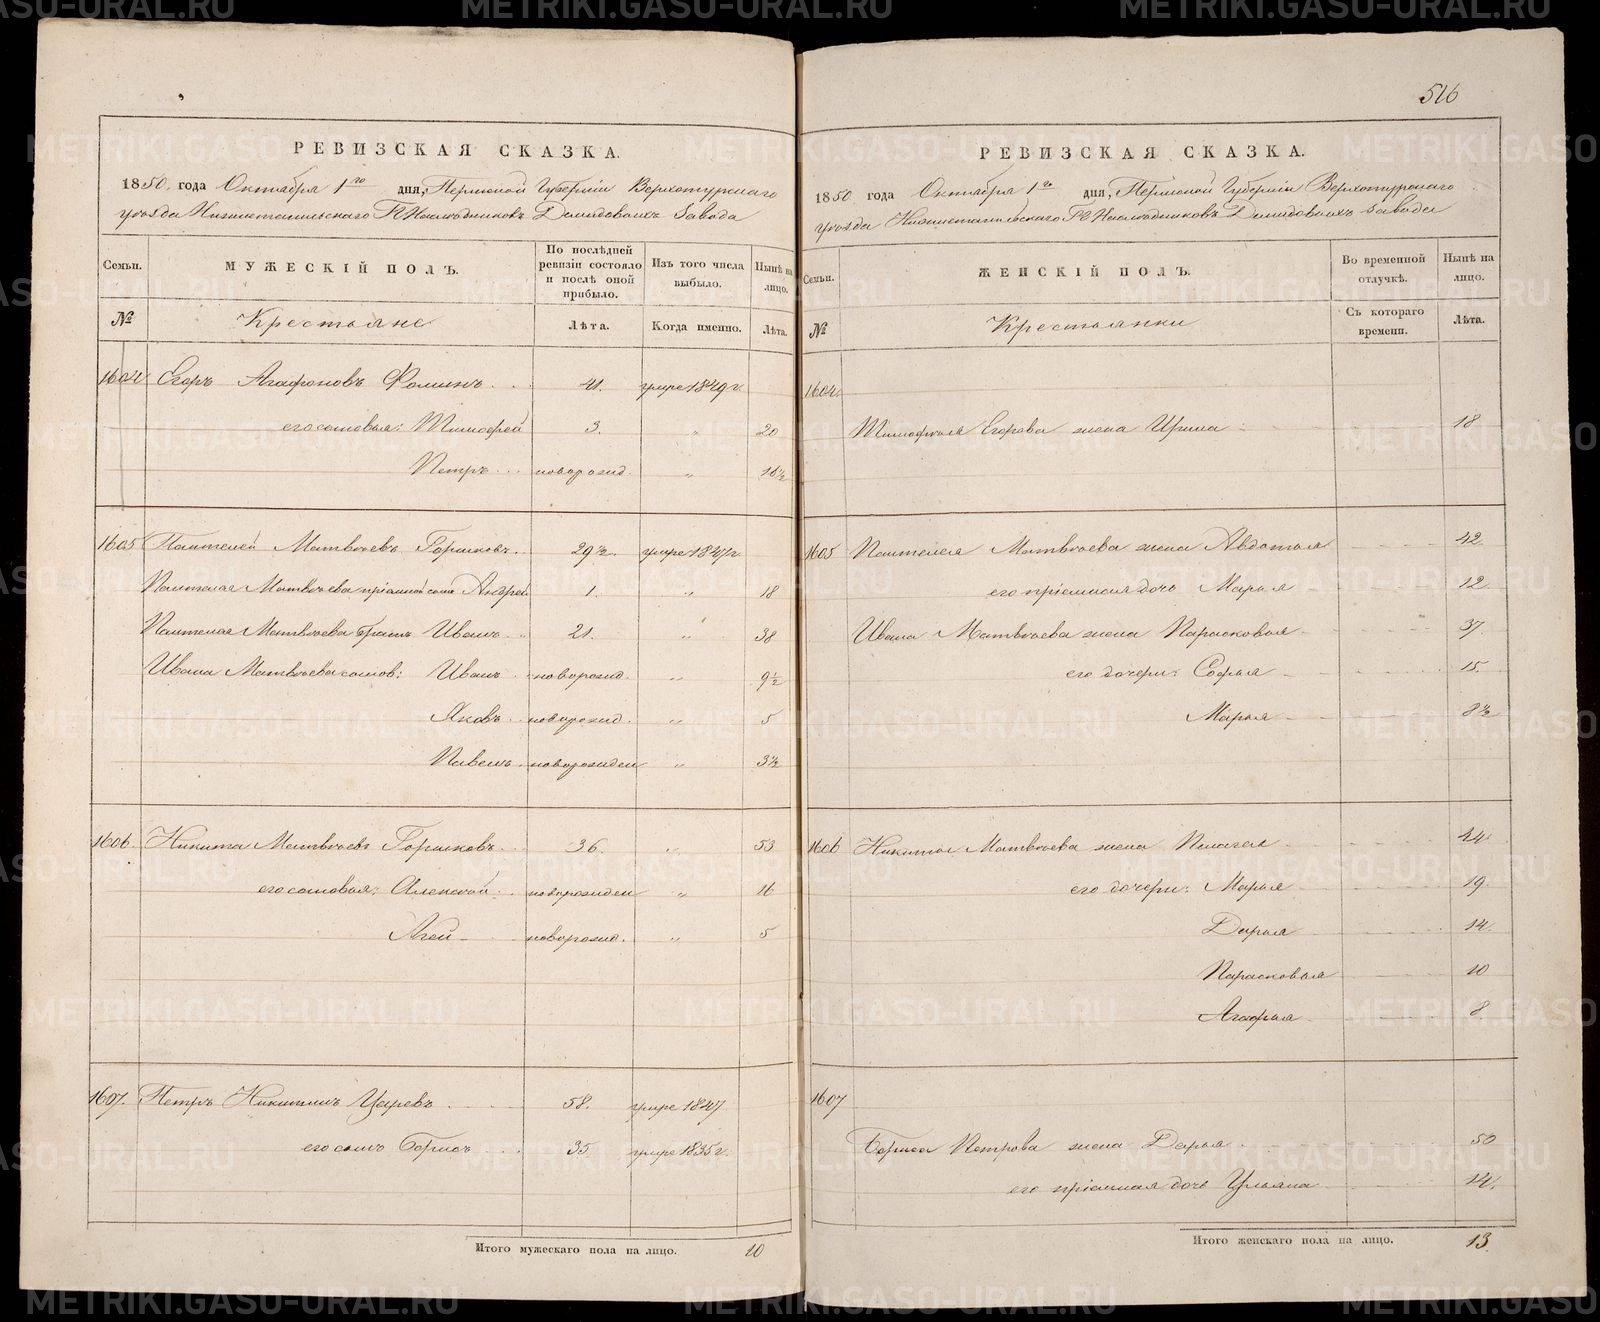 РЕВИЗСКАЯ СКАЗКА.
1850. года Октября 1го дня, Пермской Губерніи Верхотурскаго
уѣзда Нижнетагильскаго Г.г. Наслѣдниковъ Демидовыхъ Завода
Семьи. МУЖЕСКІЙ ПОЛЪ. По послѣдней ревизіи состояло и послѣ оной прибыло. Изъ того числа выбыло. Нынѣ на лицо.
№ Крестьяне Лѣта. Когда именно. Лѣта.
1604 Егоръ Агафоновъ Фоминъ 41. умре 1849 г
его сыновья: Тимофей 3. " 20
Петръ новорожд. " 16½
1605 Пантелей Матвѣевъ Горшковъ. 29½. умре 1847 г
Пантелея Матвѣева пріемной сынъ Андрей 1. " 18
Пантелея Матвѣева братъ Иванъ 21. " 38
Ивана Матвѣева сынов: Иванъ новорожд. " 9½
Яковъ новорожд. " 5
Павелъ новорожден " 3½
1606. Никита Матвѣевъ Горшковъ 36. " 53
его сыновья: Алексѣй новорожден " 16
Агей новорожд. " 5
1607. Петръ Никитинъ Царевъ 58. умре 1847
его сынъ Борисъ 35 умре 1835 г.
Итого мужескаго пола на лицо. 10
516
РЕВИЗСКАЯ СКАЗКА.
1850 года Октября 1го дня, Пермской Губерніи Верхотурскаго
уѣзда Нижнетагильскаго Г.г. Наслѣдниковъ Демидовыхъ завода
Семьи. ЖЕНСКІЙ ПОЛЪ. Во временной отлучкѣ. Нынѣ на лицо.
№ Крестьянки Съ котораго времени. Лѣта.
1604.
Тимофея Егорова жена Ирина 18
1605 Пантелея Матвѣева жена Авдотья 42
его пріемная дочь Марья 12
Ивана Матвѣева жена Парасковья 37.
его дочери: Софья 15.
Марья 8½
1606 Никиты Матвѣева жена Пелагея 44
его дочери: Марья 19.
Дарья 14.
Парасковья 10
Агафья 8
1607
Бориса Петрова жена Дарья 50
его пріемная дочь Ульяна 14.
Итого женскаго пола на лицо. 13.
METRIKI.GASO-URAL.RU